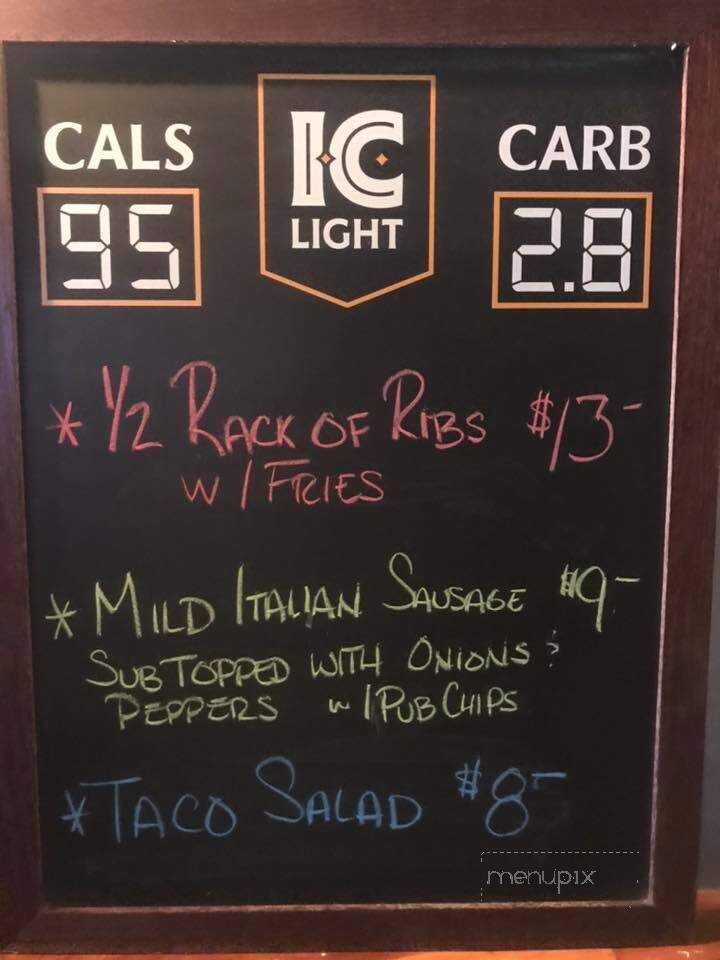 CALS
IC
LIGHT
CARB
95
2.8
* 1/2 RACK OF RIBS $13-
W/FRIES
* MILD ITALIAN SAUSAGE $9-
SUB TOPPED WITH ONIONS &
PEPPERS w/PUB CHIPS
* TACO SALAD $8-
menupix